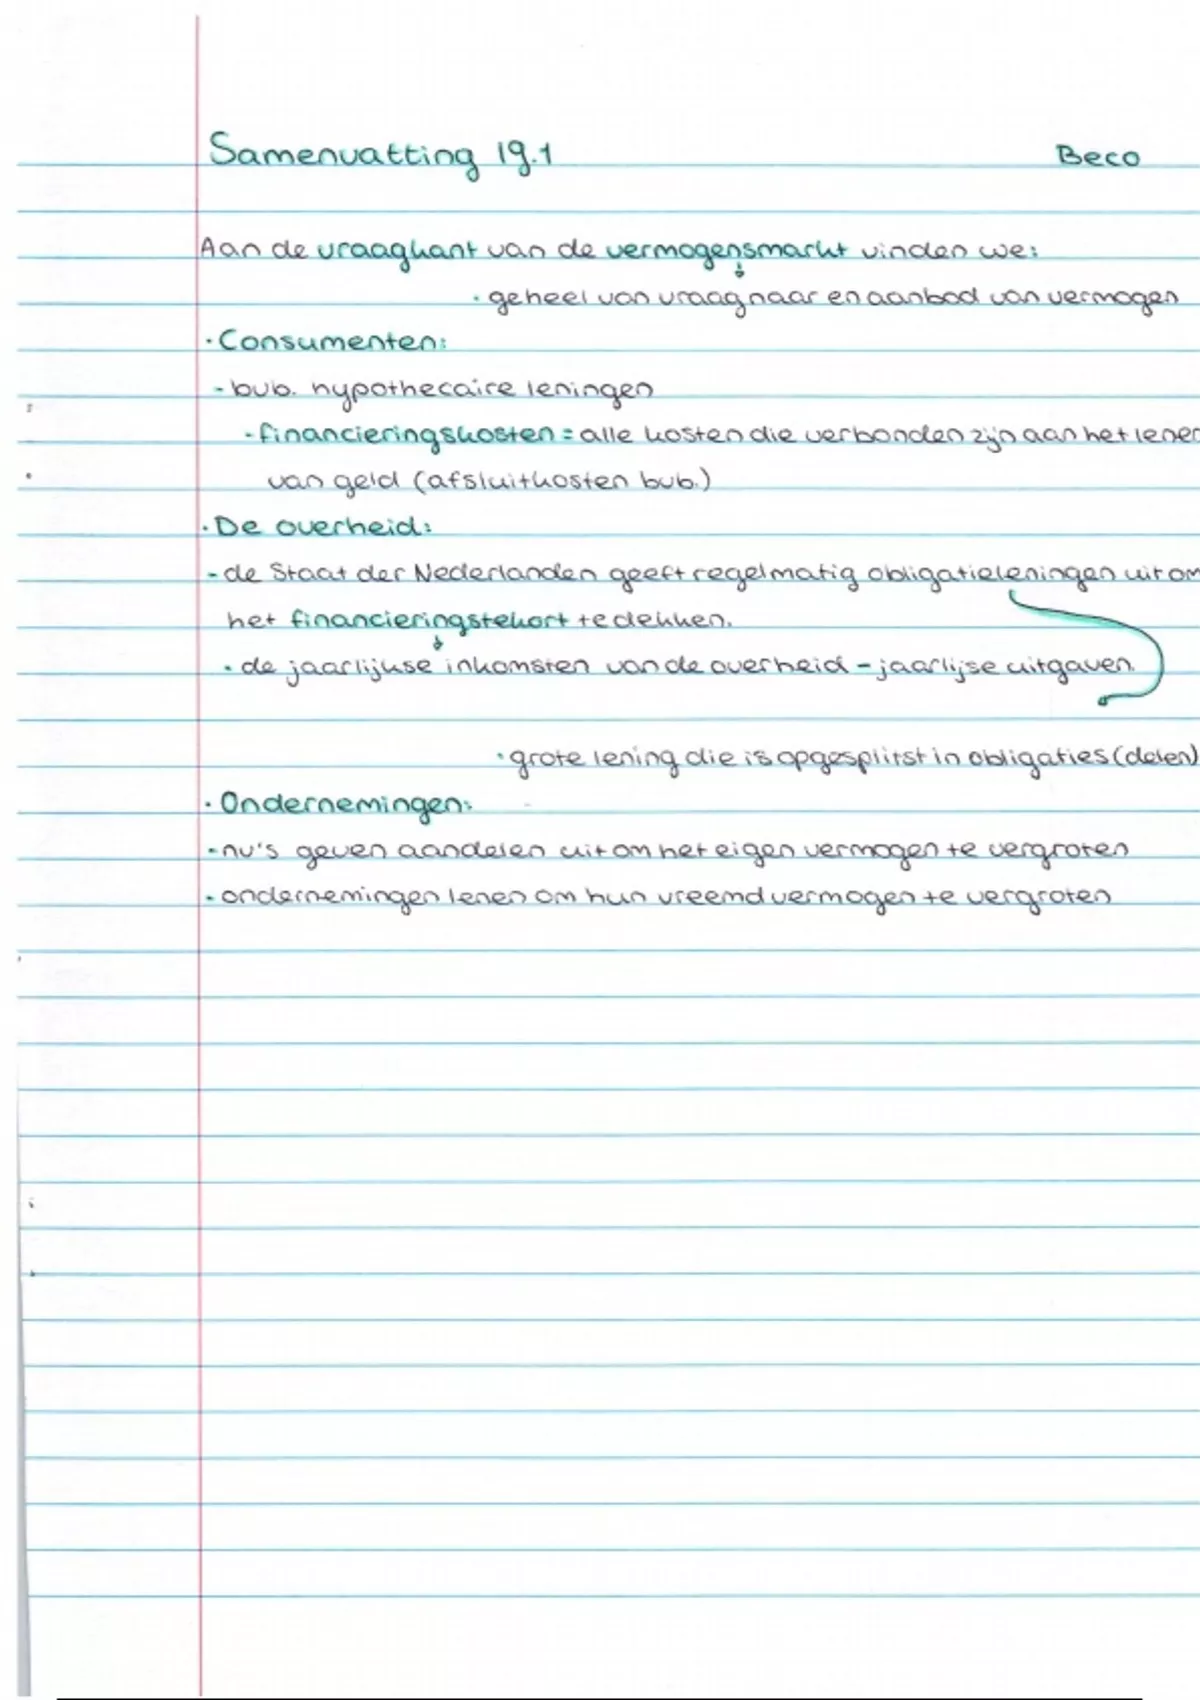 Samenvatting 19.1 Beco
Aan de vraagkant van de vermogensmarkt vinden we:
· geheel van vraag naar en aanbod van vermogen
· Consumenten:
- bvb. hypothecaire leningen
- financieringskosten = alle kosten die verbonden zijn aan het lenen
van geld (afsluitkosten bvb.)
· De overheid:
- de Staat der Nederlanden geeft regelmatig obligatieleningen uit om
het financieringstekort te dekken.
· de jaarlijkse inkomsten van de overheid - jaarlijse uitgaven
· grote lening die is opgesplitst in obligaties (delen)
· Ondernemingen:
- nv's geven aandelen uit om het eigen vermogen te vergroten
- ondernemingen lenen om hun vreemd vermogen te vergroten